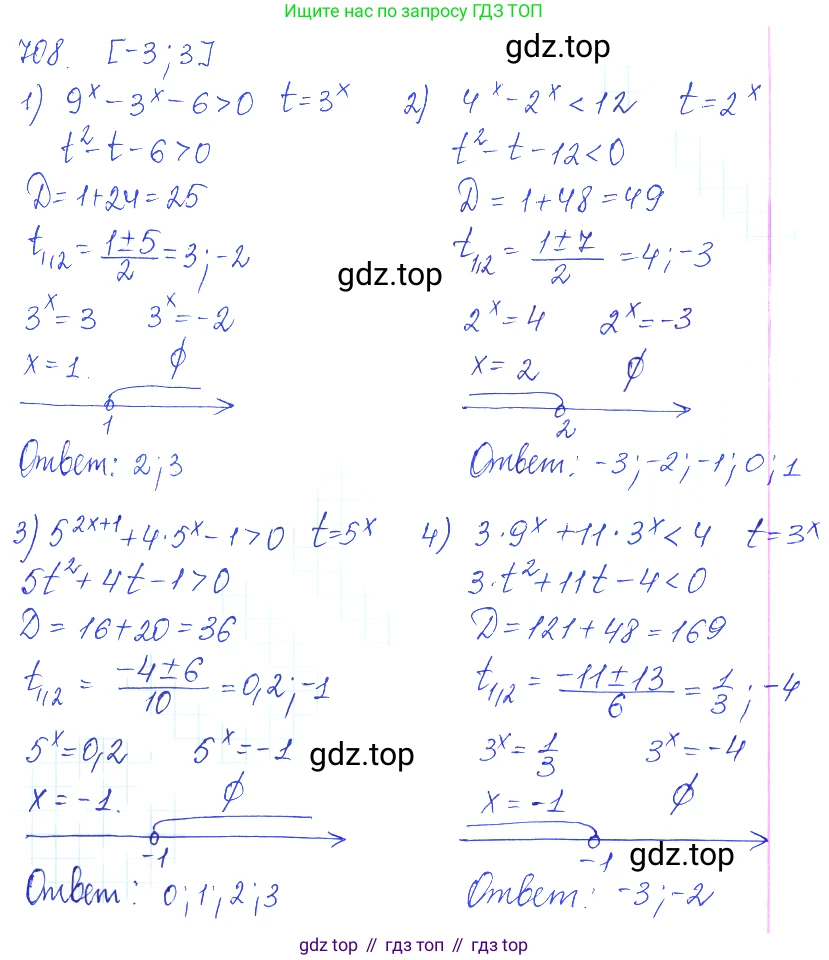 Ищите нас по запросу ГДЗ ТОП
708. [-3; 3]
gdz.top
1) 9^x - 3^x - 6 > 0 t = 3^x
t^2 - t - 6 > 0
D = 1 + 24 = 25
t_{1,2} = \frac{1 ± 5}{2} = 3; -2
3^x = 3 3^x = -2
x = 1. ∅
1
Ответ: 2; 3
2) 4^x - 2^x < 12 t = 2^x
t^2 - t - 12 < 0
D = 1 + 48 = 49
t_{1,2} = \frac{1 ± 7}{2} = 4; -3
gdz.top
2^x = 4 2^x = -3
x = 2 ∅
2
Ответ: -3; -2; -1; 0; 1
3) 5^{2x+1} + 4 · 5^x - 1 > 0 t = 5^x
5t^2 + 4t - 1 > 0
D = 16 + 20 = 36
t_{1,2} = \frac{-4 ± 6}{10} = 0,2; -1
5^x = 0,2 5^x = -1
gdz.top
x = -1. ∅
-1
Ответ: 0; 1; 2; 3
4) 3 · 9^x + 11 · 3^x < 4 t = 3^x
3 · t^2 + 11t - 4 < 0
D = 121 + 48 = 169
t_{1,2} = \frac{-11 ± 13}{6} = \frac{1}{3}; -4
3^x = \frac{1}{3} 3^x = -4
x = -1 ∅
-1
gdz.top
Ответ: -3; -2
gdz top // гдз топ // гдз top